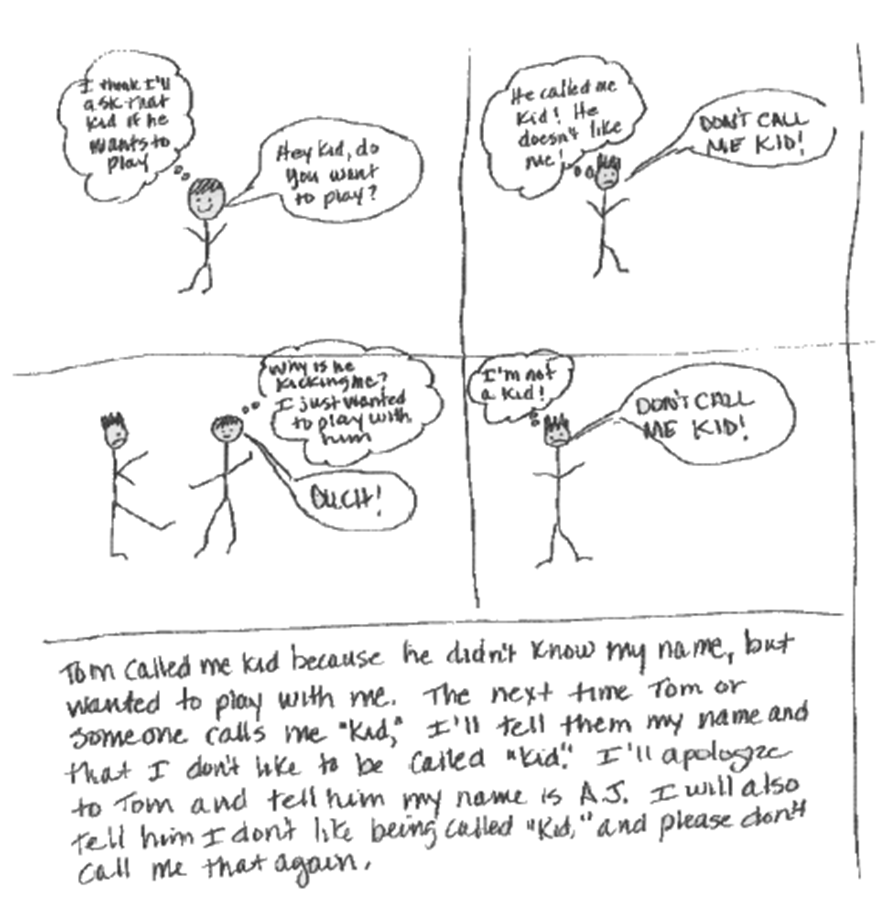 I think I'll
ask that
kid if he
wants to
play
Hey kid, do
you want
to play?
He called me
kid! He
doesn't like
me!
DON'T CALL
ME KID!
Why is he
kicking me?
I just wanted
to play with
him
OUCH!
I'm not
a kid!
DON'T CALL
ME KID!
Tom called me kid because he didn't know my name, but
wanted to play with me. The next time Tom or
someone calls me "kid," I'll tell them my name and
that I don't like to be called "kid." I'll apologize
to Tom and tell him my name is A.J. I will also
tell him I don't like being called "kid," and please don't
call me that again.